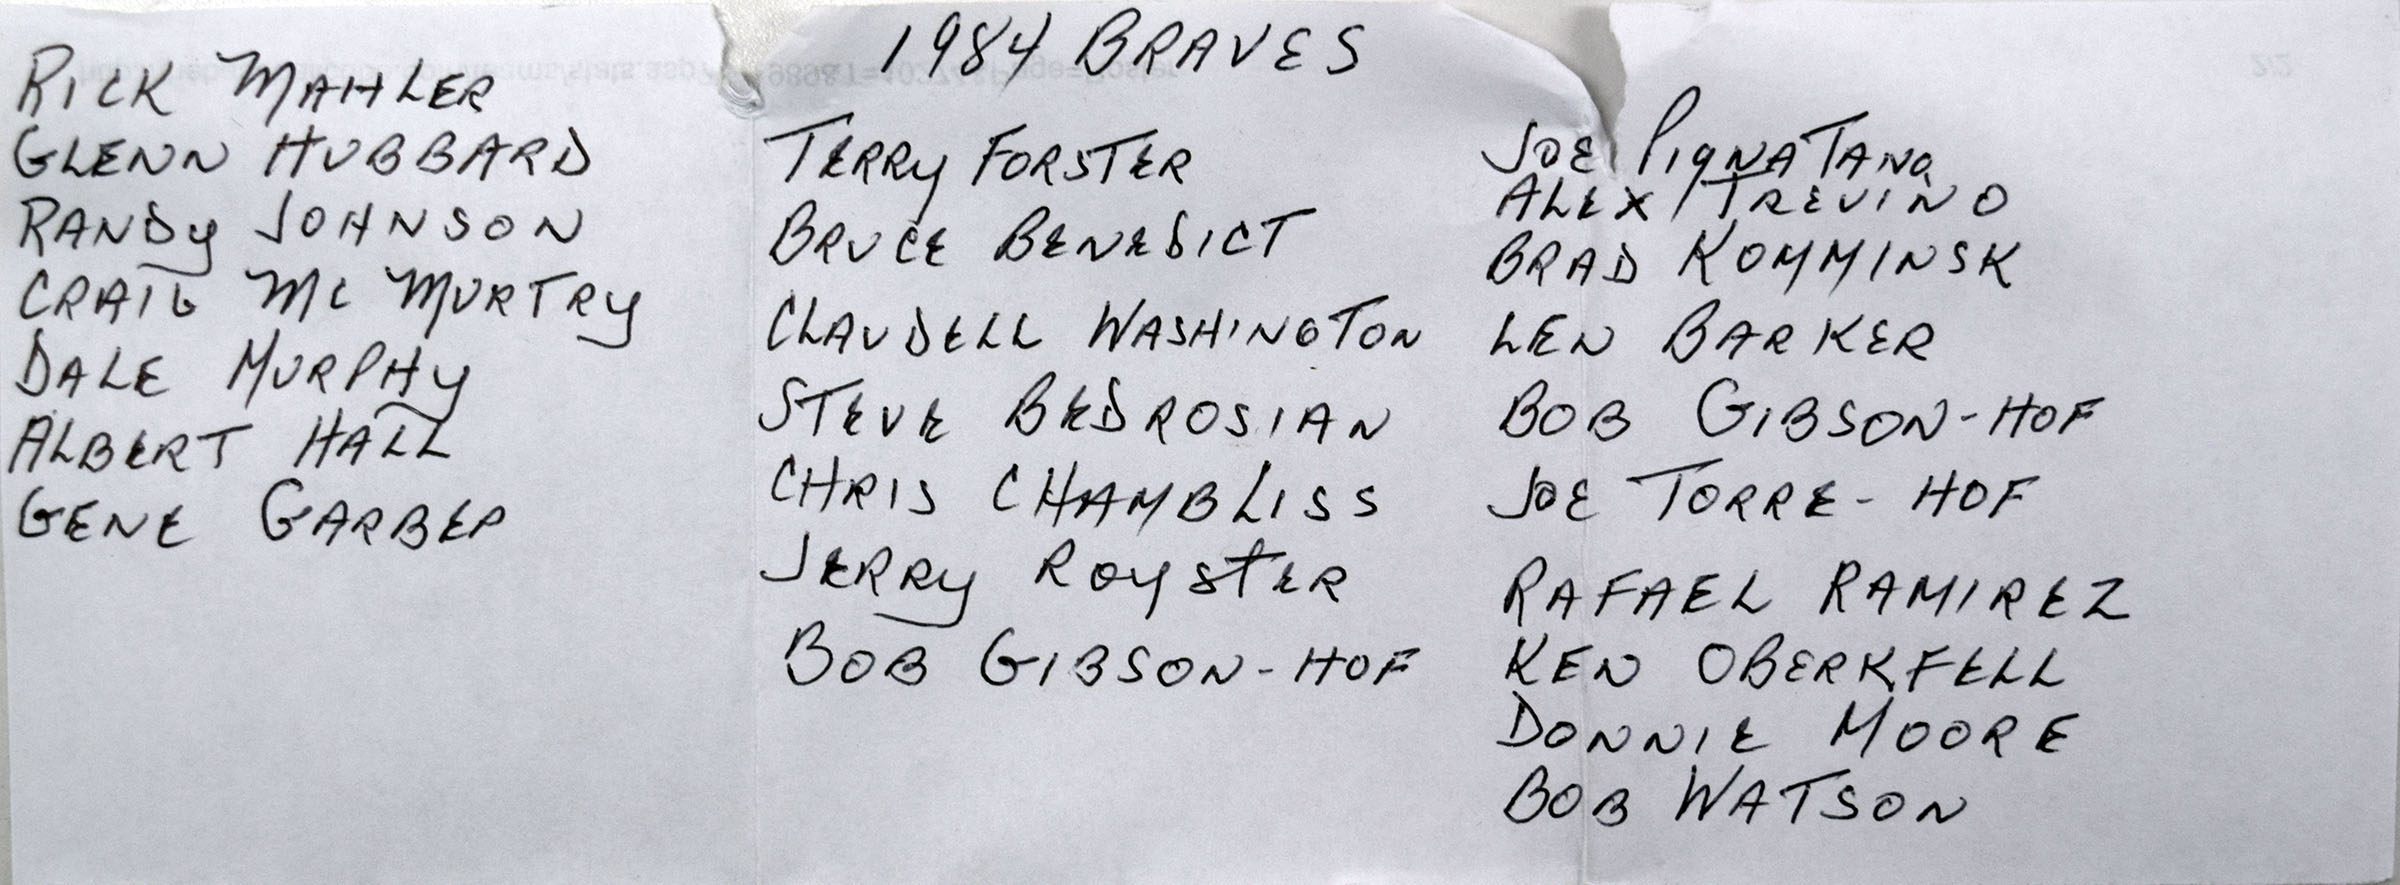 1984 BRAVES
RICK MAHLER
GLENN HUBBARD
RANDY JOHNSON
CRAIG MC MURTRY
DALE MURPHY
ALBERT HALL
GENE GARBER
TERRY FORSTER
BRUCE BENEDICT
CLAUDELL WASHINGTON
STEVE BEDROSIAN
CHRIS CHAMBLISS
JERRY ROYSTER
BOB GIBSON-HOF
JOE PIGNATANO
ALEX TREVINO
BRAD KOMMINSK
LEN BARKER
BOB GIBSON-HOF
JOE TORRE- HOF
RAFAEL RAMIREZ
KEN OBERKFELL
DONNIE MOORE
BOB WATSON